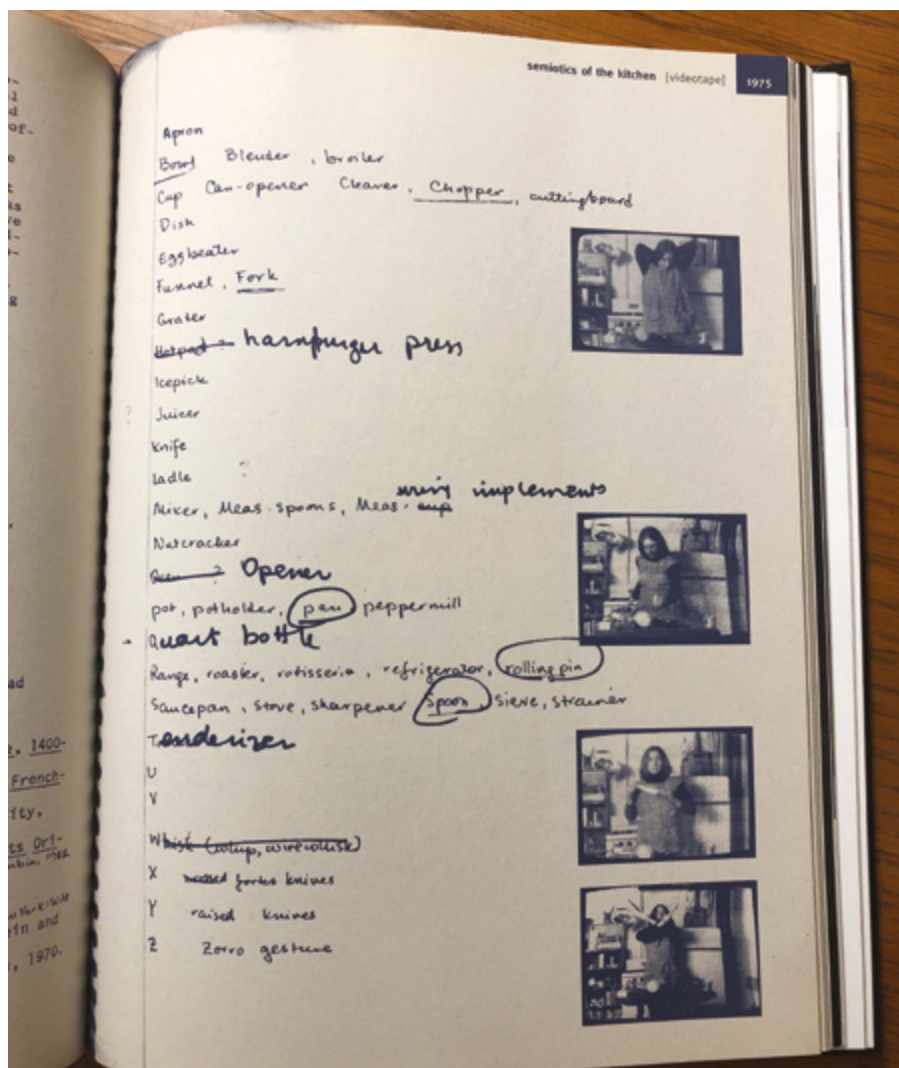 semiotics of the kitchen [videotape] 1975
Apron
Bowl Blender, broiler
Cup Can-opener Cleaver, Chopper, cuttingboard
Dish
Eggbeater
Funnel, Fork
Grater
Hotpad ? hamburger press
Icepick
Juicer
Knife
Ladle ?
uring implements
Mixer, Meas. spoons, Meas. cup
Nutcracker
? Opener
pot, potholder, pan peppermill
Quart bottle
Range, roaster, rotisserie, refrigerator, rolling pin
Saucepan, stove, sharpener Spoon, sieve, strainer
Tenderizer
U
V
Whisk (whip, wirewhisk)
X forks knives
Y raised knives
Z Zorro gesture
ad
1400-
French-
ity,
ts Ori-
in and
, 1970.